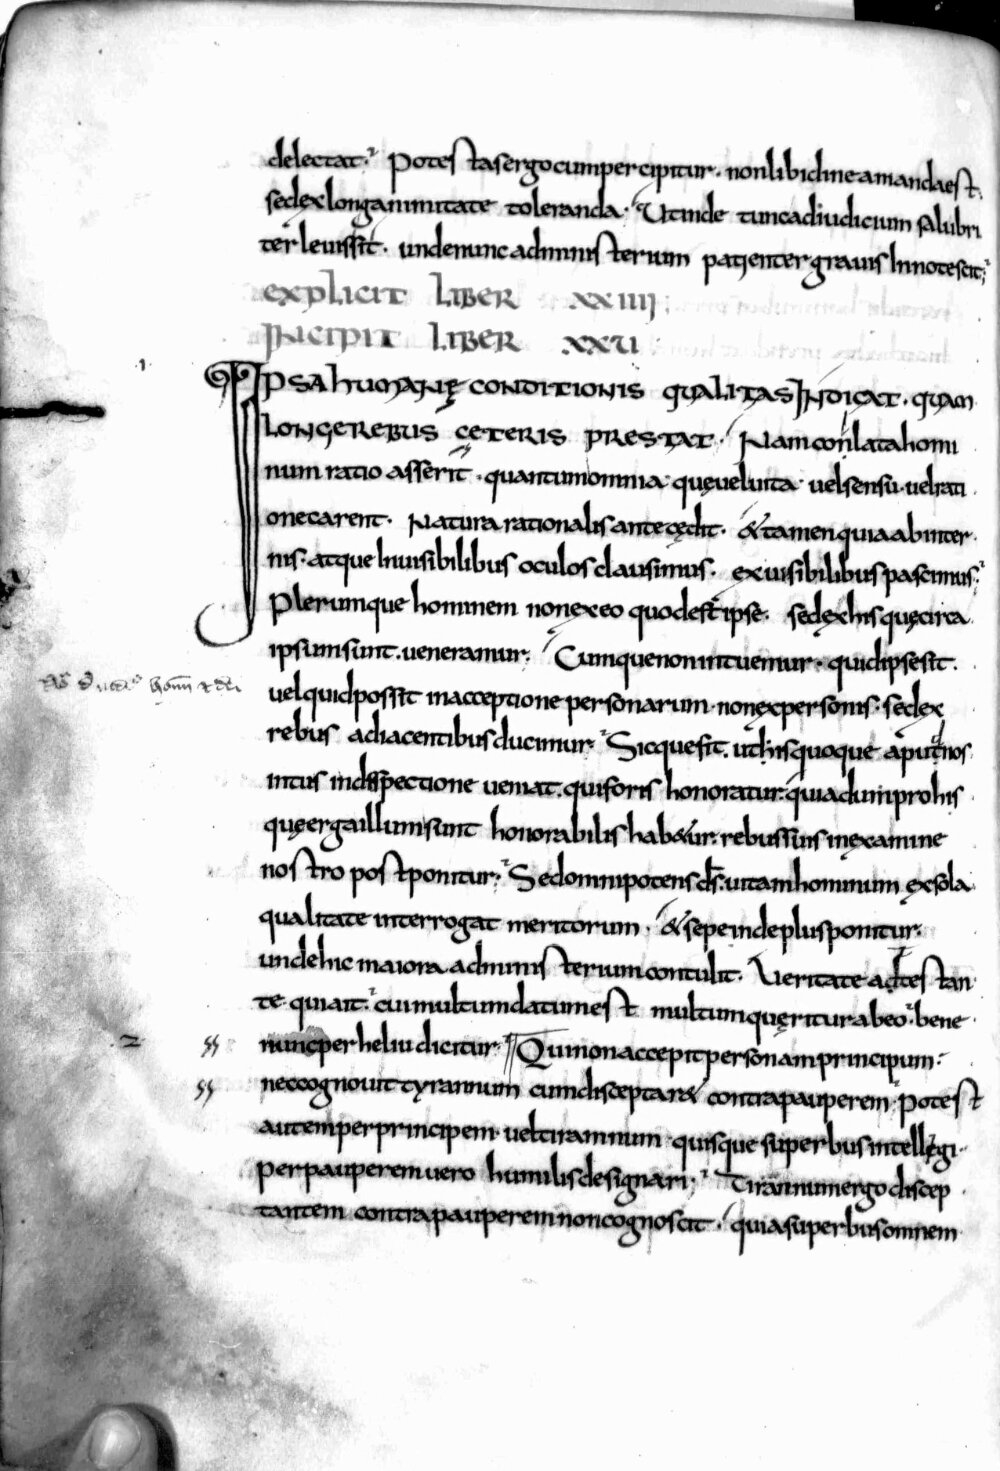 delectat. Potestas ergo cum percipitur. non libidine amanda est.
sed ex longanimitate toleranda. Ut inde tunc ad iudicium salubri
ter levis sit. unde nunc ad ministerium patienter gravis Innotescit;
explicit LIBER XXIIII;
INCIPIT LIBER XXV
1.
IPSA hUMANę CONDITIONIS QUALITAS INDICAT. QUAM
LONGE REBUS CęTERIS PRESTAT. Nam conlata homi
num ratio asserit. quantum omnia quę vel vita vel sensu. vel rati
one carent. Natura rationalis antecędit. & tamen quia ab inter
nis. atque Invisibilibus oculos clausimus. ex visibilibus pascimus;
Plerumque hominem non ex eo quod est ipse. sed ex his quę circa
ipsum sunt. veneramur. Cumque non intuemur. quid ipse sit.
vel quid possit in acceptione personarum. non ex personis. sed ex
rebus adiacentibus ducimur. Sicque fit. ut his quoque aput nos
intus in despectione veniat. qui foris honoratur. quia dum pro his
quę erga illum sunt honorabilis hab&ur. rebus suis in examine
nostro postponitur; Sed omnipotens ds. vitam hominum ex sola
qualitate interrogat meritorum. & sepe inde plus ponitur.
unde hic maiora ad ministerium contulit. Veritate adtestan
te. qui ait. cui multum datum est multum quęritur ab eo. bene
2 nunc per heliu dicitur. Qui non accepit personam principum.
nec cognovit tyrannum cum disceptar& contra pauperem. Potest
autem per principem vel tirannum quisque superbus intellegi.
per pauperem vero humilis designari; Tirannum ergo discep
tantem contra pauperem non cognoscit. quia superbus omnem